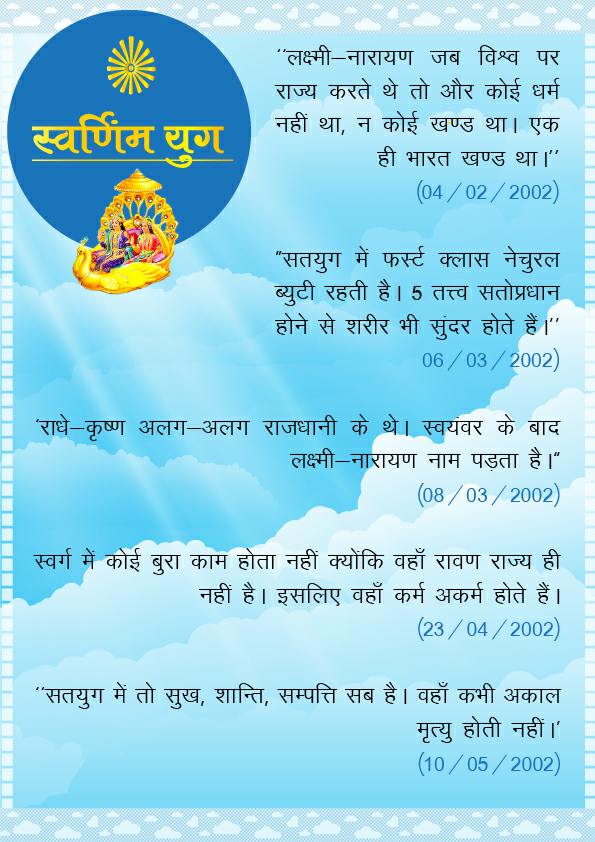 स्वर्णिम युग
‘‘लक्ष्मी–नारायण जब विश्व पर
राज्य करते थे तो और कोई धर्म
नहीं था, न कोई खण्ड था। एक
ही भारत खण्ड था।’’
(04/02/2002)
“सतयुग में फर्स्ट क्लास नेचुरल
ब्युटी रहती है। 5 तत्त्व सतोप्रधान
होने से शरीर भी सुंदर होते हैं।’’
06/03/2002)
‘राधे–कृष्ण अलग–अलग राजधानी के थे। स्वयंवर के बाद
लक्ष्मी–नारायण नाम पड़ता है।“
(08/03/2002)
स्वर्ग में कोई बुरा काम होता नहीं क्योंकि वहाँ रावण राज्य ही
नहीं है। इसलिए वहाँ कर्म अकर्म होते हैं।
(23/04/2002)
‘‘सतयुग में तो सुख, शान्ति, सम्पत्ति सब है। वहाँ कभी अकाल
मृत्यु होती नहीं।’
(10/05/2002)